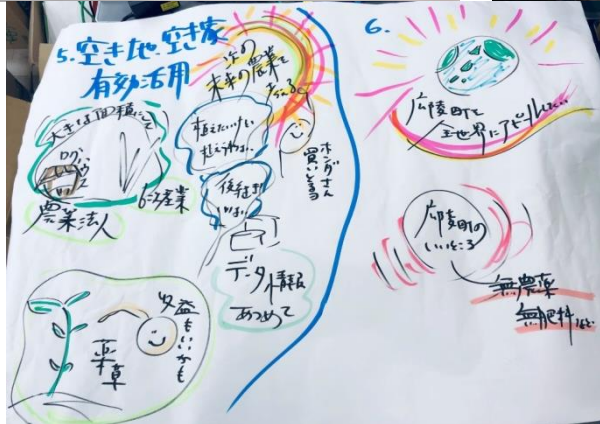 5. 空き地、空き家
有効活用
次の
未来の農業を
考える
大きな面積にして
ログハウス
6次産業
農業法人
植えたいけど
後継ぎが
いない
ホンダさん
買いとる
データ情報
あつめて
収益もいいかも
薬草
6.
広陵町を
全世界にアピールしたい
広陵町の
いいところ
無農薬
無肥料など